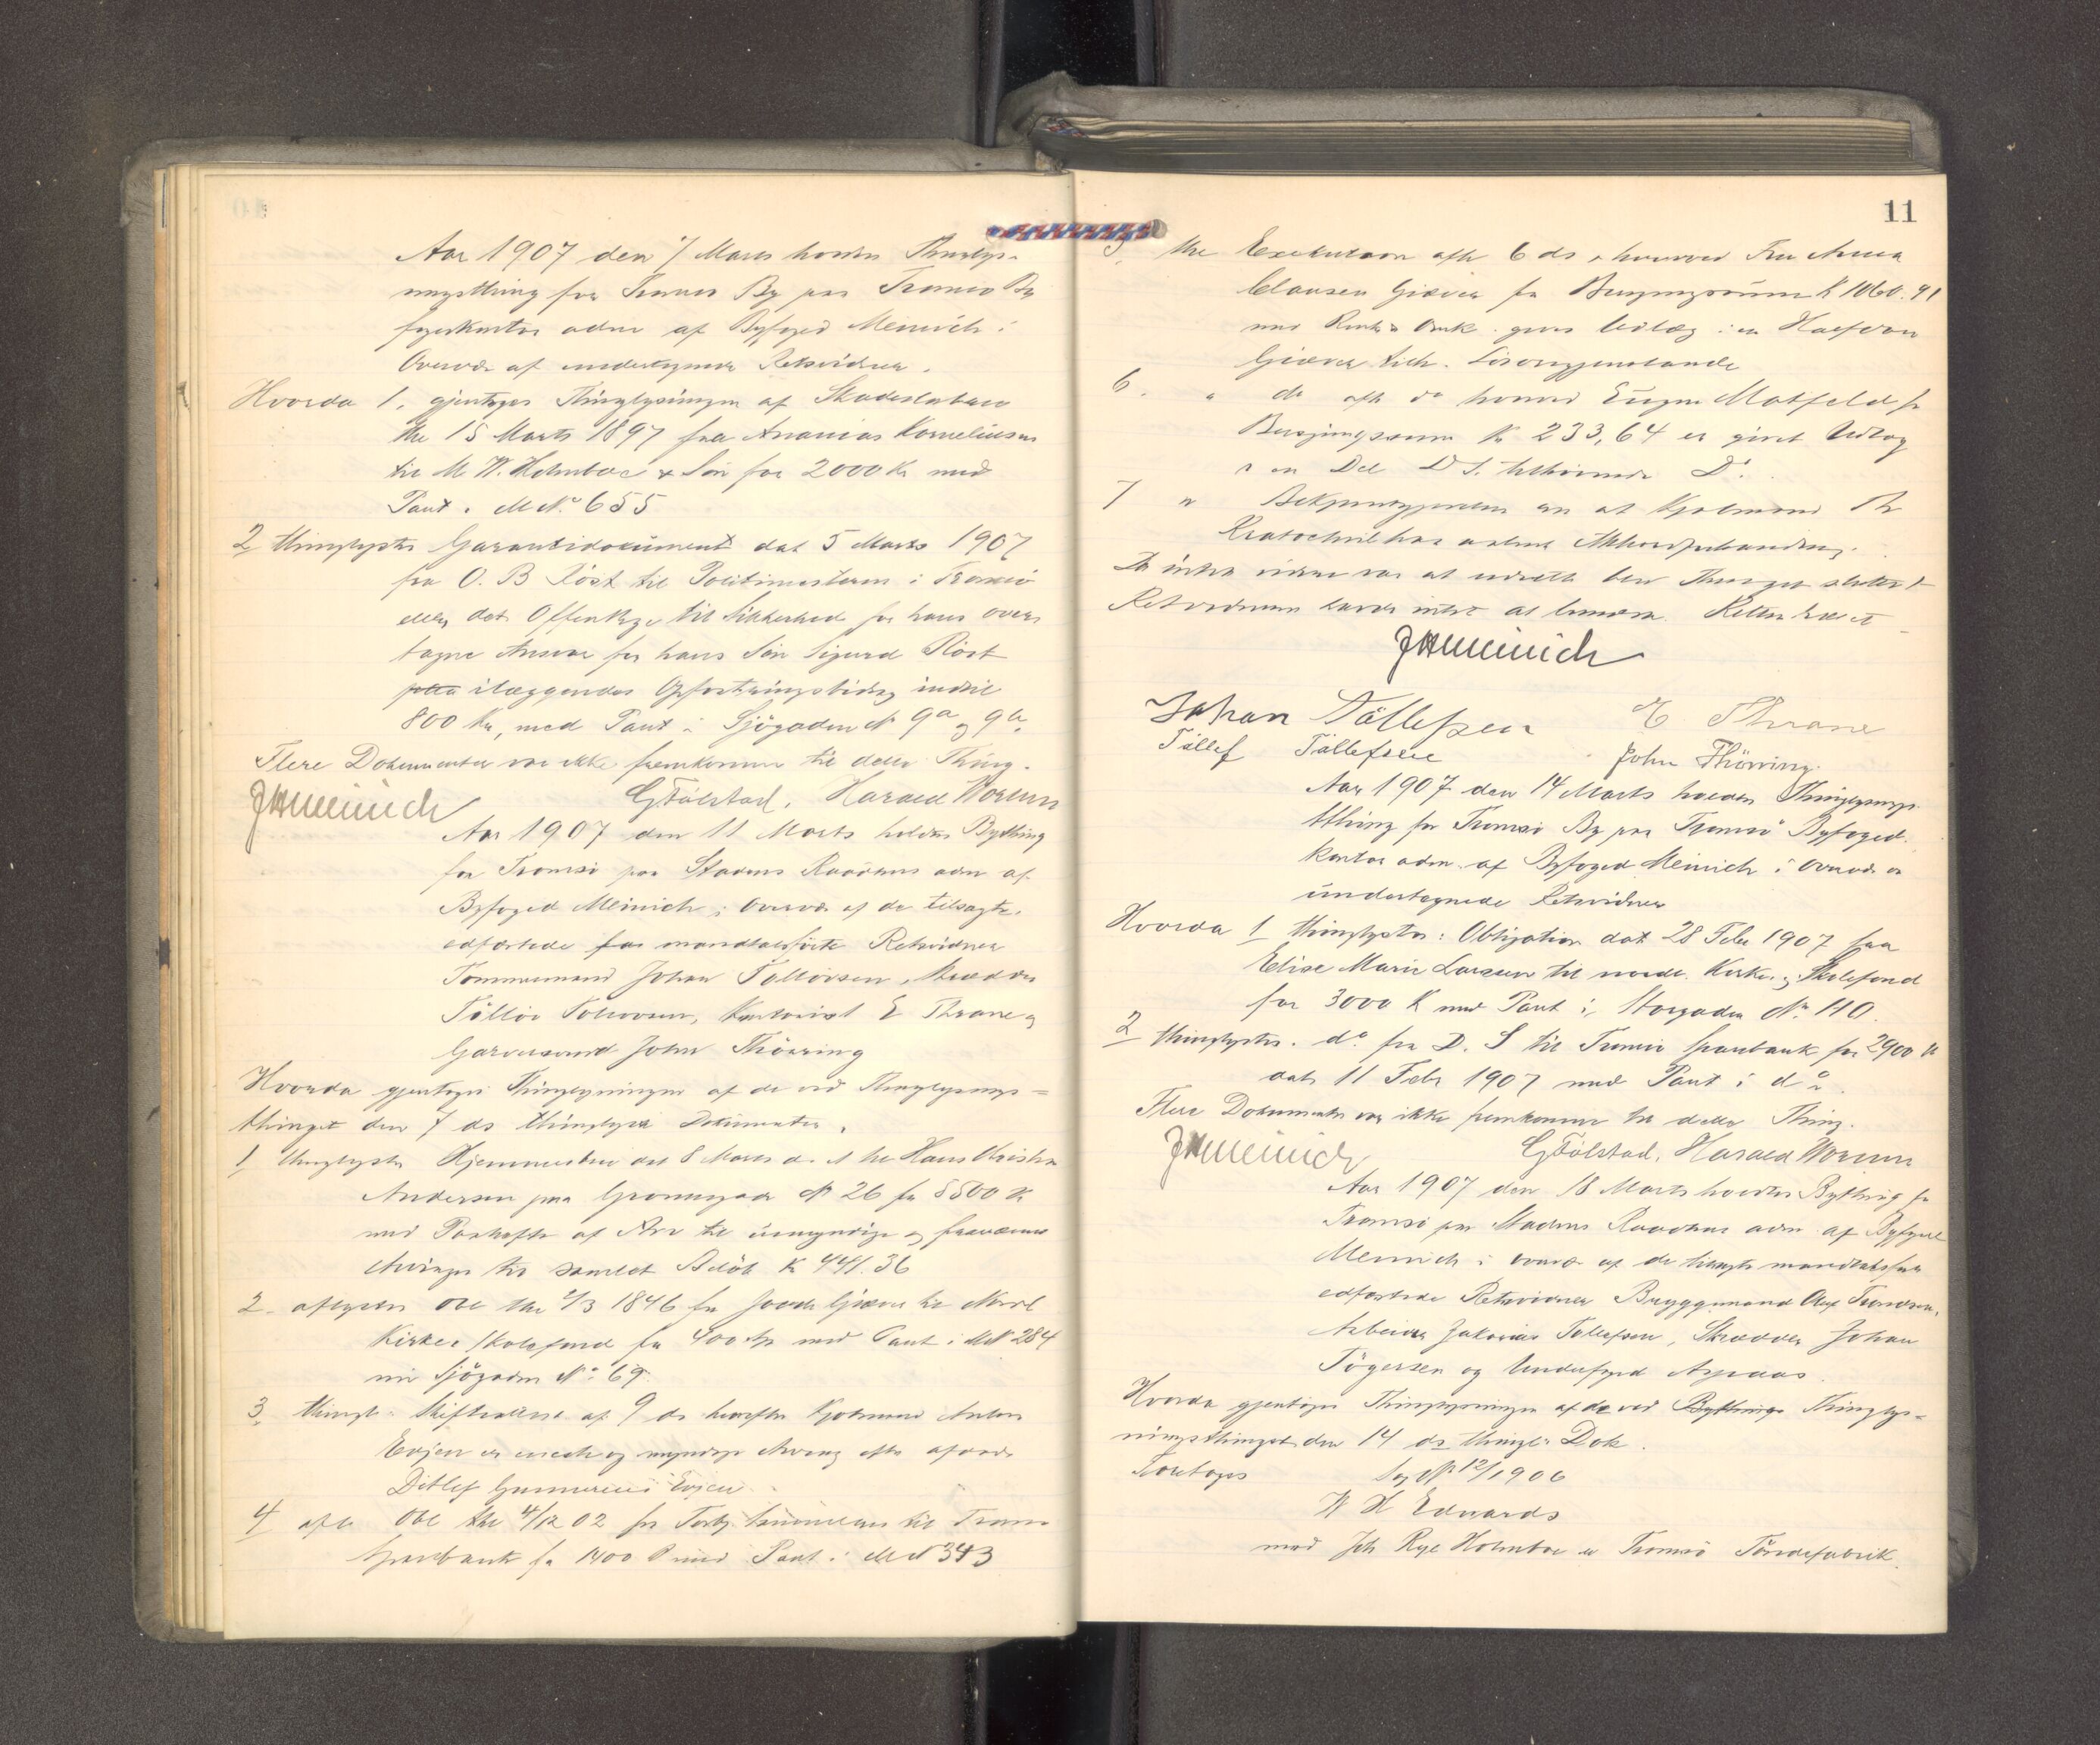 Aar 1907 den 7 Marts holdtes Thinglys-
ningsthing for Tromsö By paa Tromsö By
fogedkontor adm af Byfoged Meinich i
Overvær af undertegnede Retsvidner.
Hvorda 1, gjentages Thinglysningen af Skadesløsbrev
the 15 Marts 1897 fra Ananias Korneliussen
til M W. Holmboe & Sön for 2000 Kr med
Pant i M.N.o 655
2 thinglystes Garantidokument dat 5 Marts 1907
fra O. B Röst til Politimesteren i Tromsö
eller det Offentlige til Sikkerhed for hans over
tagne Ansvar for hans Sön Sigurd Röst
ilæggendes Opfostringsbidrag indtil
800 Kr, med Pant i Sjögaden N 9a og 9b.
Flere Dokumenter var ikke fremkomne til dette Thing.
JHMeinich GFölstad. Harald Worum
Aar 1907 den 11 Marts holdtes Bything
for Tromsö paa Stadens Raadhus adm af
Byfoged Meinich i Overvær af de tilsagte
edfæstede mandtalsförte Retsvidner
Tømmermand Johan Tollevsen, Skrædder
Töllev Tollevsen, Kontorist E Thrane og
Garversvend John Thörring
Hvorda gjentoges Thinglysningen af de ved Thinglysnings-
thinget den 7 ds thinglyste Dokumenter.
1 thinglystes Hjemmelsbrev dat 8 Marts d. A. the Hans Christian
Andersen paa Grönnegade N 26 for 5500 Kr
med Panteheftelse af Arv til umyndige og fraværende
Arvinger til samlet Beløb K 441.36
2. aflystes Obl the 2/3 1846 fra Giæver til Nord
Kirke og Skolefond for 400 med Pant i M.N 284
nu Sjögaden No 69.
3, thingl. Skifteattest af 9 ds hvorefter Kjöbmand Anton
Evjen er eneste og myndige Arving efter afdøde
Ditlef Evjen
4 afl. Obl the 4/12 02 fra til Tromsö
Sparebank for 1400 med Pant i M.N 343
11
5, the Execution afh 6 ds, hvorved Fru Anna
Clausen Giæver for K 1060.91
med Renter & Omk. gives Udlæg i en Halfdan
Giæver tilh. Lösöregjenstande
6. " do afh do hvorved Eugen Motfeldt for
K 233,64 er givet Udlæg
i en Del D.S. tilhörende Do.
7 " Bekjendtgjørelse om at Kjøbmand Th
Kratochvil har aabnet Akkordforhandling.
Da intet videre var at udrette blev Thinget sluttet
Retsvidnerne havde intet at bemærke. Retten hævet
JHMeinich
Johan Tällefsen E Thrane
Tällef Tällefsen John Thörring.
Aar 1907 den 14 Marts holdtes Thinglysnings
thing for Tromsö By paa Tromsö Byfoged-
kontor adm. af Byfoged Meinich i Overvær af
undertegnede Retsvidner
Hvorda 1 thinglystes: Obligation dat 28 Febr 1907 fra
Elise Marie Larssen til nordl. Kirke- og Skolefond
for 3000 K med Pant i, Storgaden No. 110.
2 thinglystes. do. fra D. S til Tromsö Sparebank for 2900 K
dat 11 Febr 1907 med Pant i do.
Flere Dokumenter var ikke fremkomne til dette Thing.
JHMeinich GFölstad, Harald Worum
Aar 1907 den 18 Marts holdtes Bything for
Tromsö paa Stadens Raadhus adm. af Byfoged
Meinich i Overvær af de tilsagte mandtalsførte
edfæstede Retsvidner Bryggemand Tomassen,
Arbeider Zakarias Tollefsen, Skrædder Johan
Törgersen og Underfoged Aspaas.
Hvorda gjentoges Thinglysningen af de ved Bythinge Thinglys-
ningsthinget den 14 ds thingl. Dok.
Foretoges Sag No 12/1906
W H Edwards
mod Joh Rye Holmboe & Tromsö Töndefabrik.